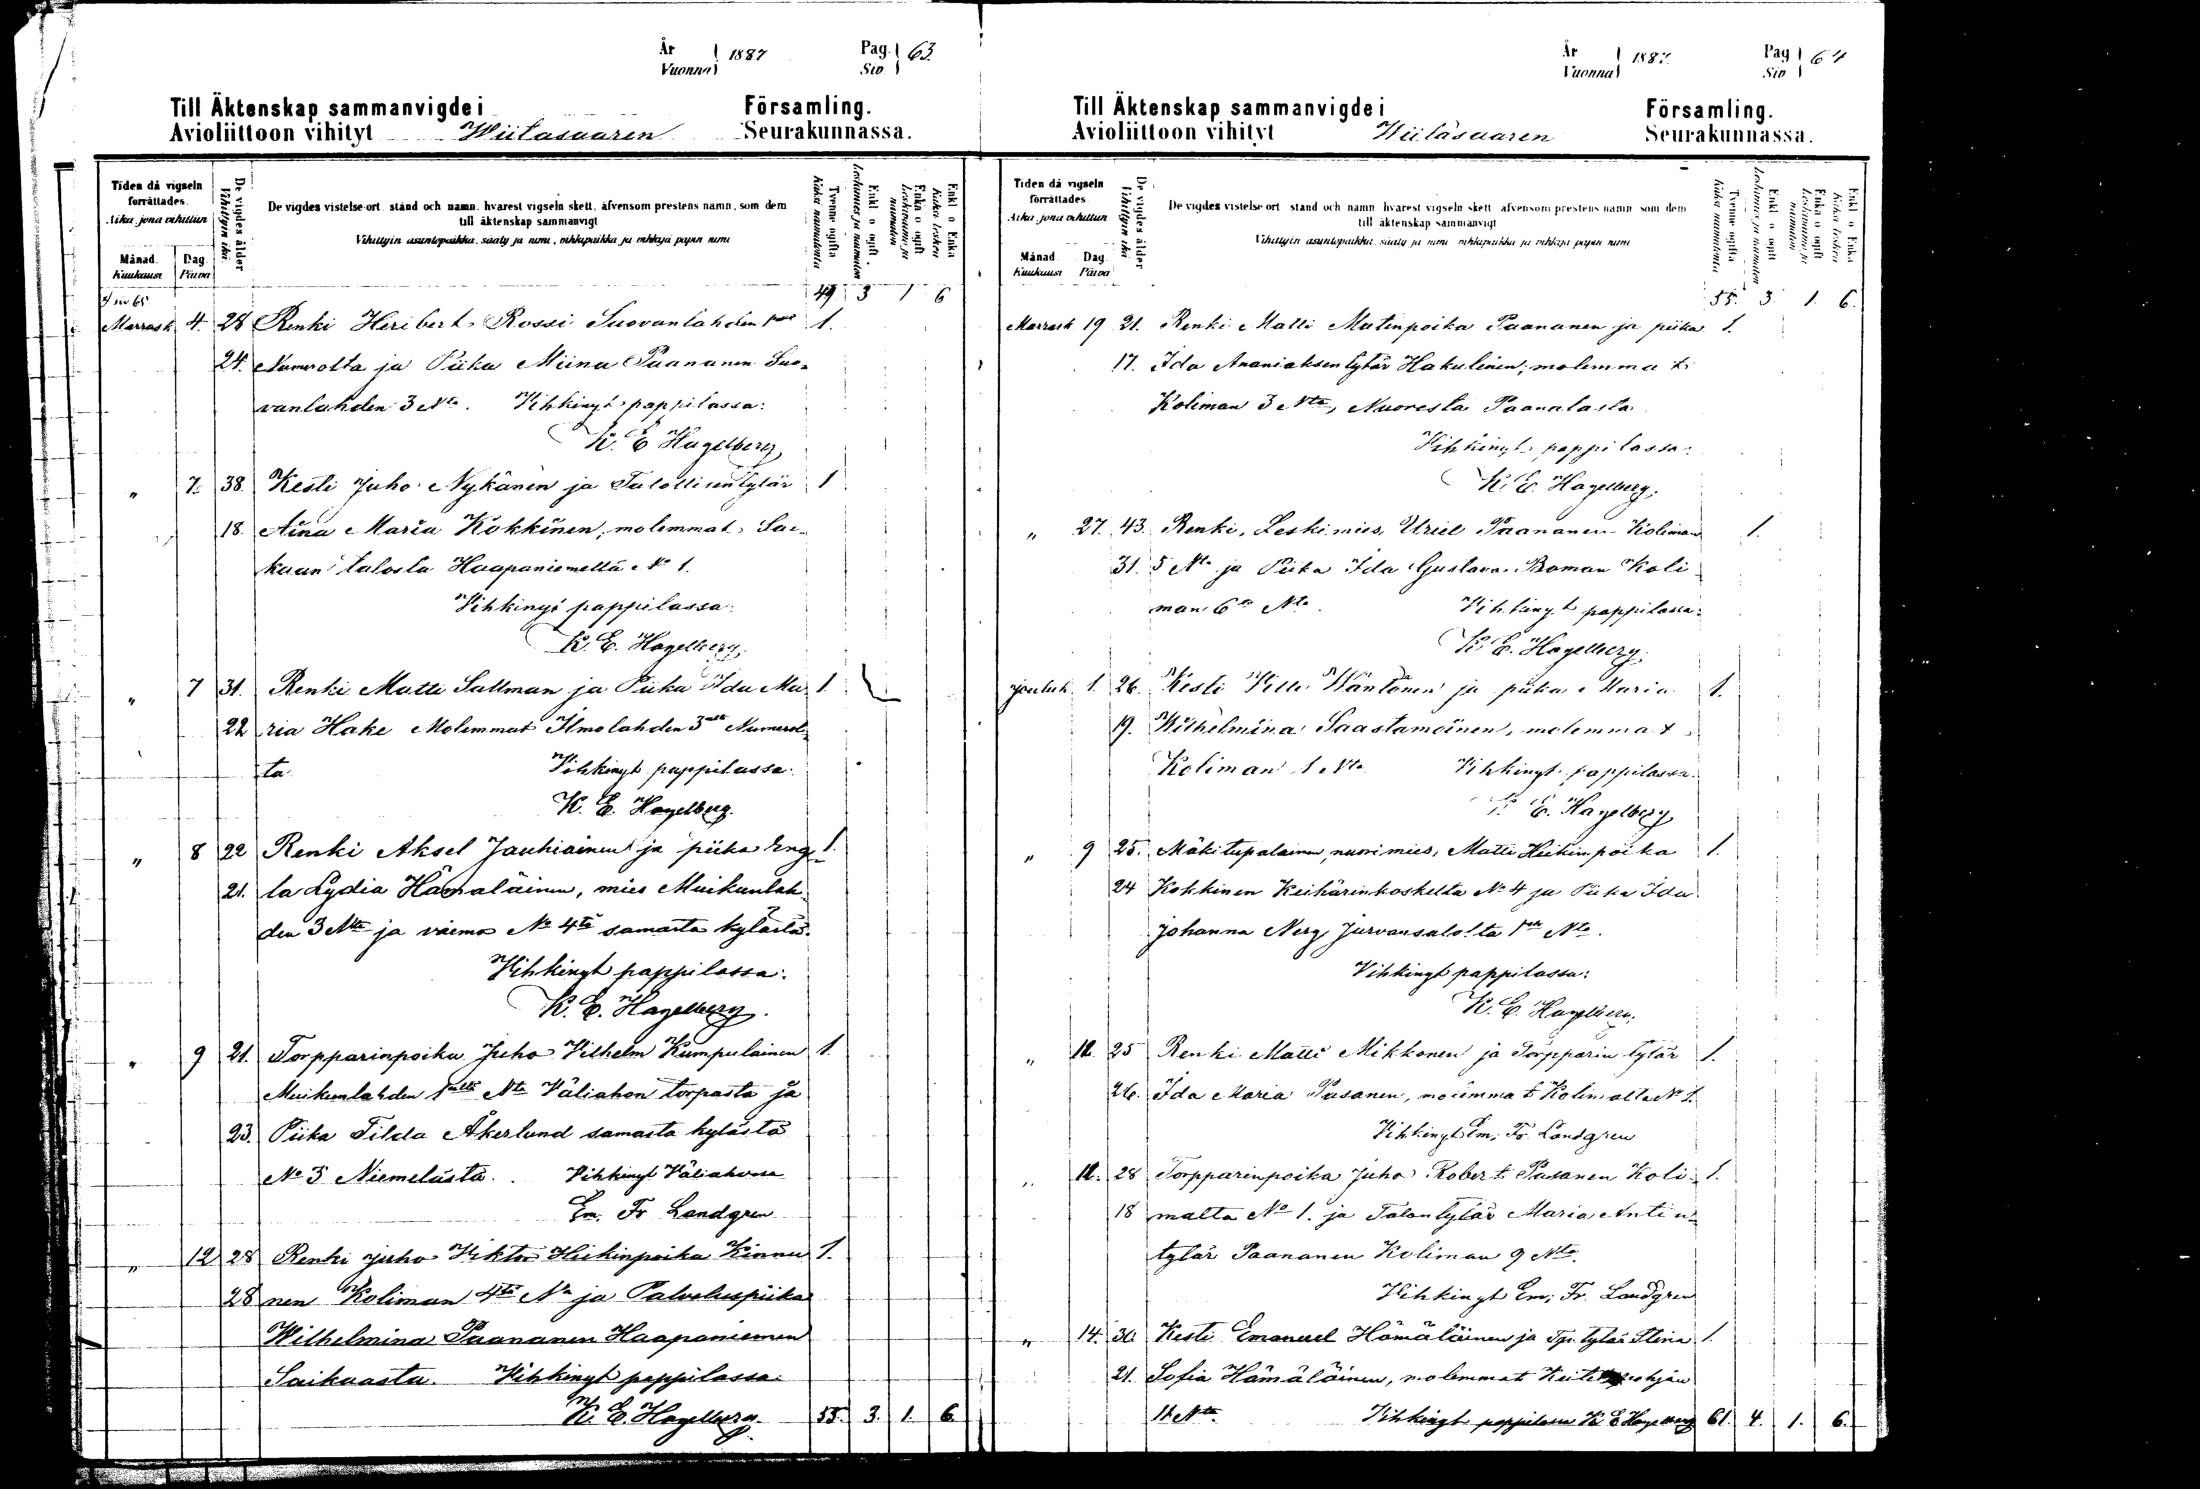 År
Vuonna 1887
Pag.
Siv 63.
Till Äktenskap sammanvigde i Församling.
Avioliittoon vihityt Wiitasaaren Seurakunnassa.
Tiden då vigseln förrättades.
Aika, jona vihittiin
Månad. Kuukausi
Dag. Päivä
De vigdes ålder
Vihittyin ikä
De vigdes vistelse-ort, stånd och namn, hvarest vigseln skett, äfvensom prestens namn, som dem
till äktenskap sammanvigt
Vihittyin asuntopaikka, sääty ja nimi, vihkipaikka ja vihkijä papin nimi
Tvenne ogifta
Kaksi naimatonta
Enkl. o. ogift.
Leskimies ja naimaton
Enka o. ogift
Leskivaimo ja naimaton
Enkl. o. Enka
Kaksi leskeä
siv 65 49 3 1 6
Marrask 4. 28 Renki Heribert Rossi Suovanlahden 1. 1.
24. Numerolta ja Piika Miina Paananen Suo-
vanlahden 3 Nlta. Vihkinyt pappilassa:
K. E. Hagelberg
„ 7. 38. Kesti Juho Nykänen ja Talollisentytär 1
18. Aina Maria Kokkinen, molemmat Sai-
kaan talosta Haapaniemeltä No 1.
Vihkinyt pappilassa:
K. E. Hagelberg.
„ 7 31. Renki Matti Sallman ja Piika Ida Ma 1.
22 ria Hake Molemmat Ilmolahden 3 Numerol-
ta. Vihkinyt pappilassa:
K. E. Hagelberg.
„ 8 22 Renki Aksel Jauhiainen ja piika Eng- 1.
21. la Lydia Hämäläinen, mies Muikunlah-
den 3 Nlta ja vaimo No 4tä samasta kylästä.
Vihkinyt pappilassa:
K. E. Hagelberg.
„ 9 21. Torpparinpoika Juho Vilhelm Kumpulainen 1.
Muikunlahden 1 Nlta Väliahon torpasta ja
23. Piika Tilda Åkerlund samasta kylästä
No 5 Niemelästä. Vihkinyt Väliahossa
Em. Fr. Landgren
„ 12 28 Renki Juho Viktor Heikinpoika Kinnu 1.
28 nen Koliman 4tä No ja Palveluspiika
Wilhelmina Paananen Haapaniemen
Saikaasta. Vihkinyt pappilassa:
K. E. Hagelberg. 55. 3. 1. 6.
År
Vuonna 1887.
Pag
Siv 64
Till Äktenskap sammanvigde i Församling.
Avioliittoon vihityt Wiitasaaren Seurakunnassa.
Tiden då vigseln förrättades.
Aika, jona vihittiin
Månad. Kuukausi
Dag. Päivä
De vigdes ålder
Vihittyin ikä
De vigdes vistelse-ort, stånd och namn, hvarest vigseln skett, äfvensom prestens namn, som dem
till äktenskap sammanvigt
Vihittyin asuntopaikka, sääty ja nimi, vihkipaikka ja vihkijä papin nimi
Tvenne ogifta
Kaksi naimatonta
Enkl. o. ogift
Leskimies ja naimaton
Enka o. ogift
Leskivaimo ja naimaton
Enkl. o. Enka
Kaksi leskeä
55. 3. 1. 6.
Marrask 19 21. Renki Matti Matinpoika Paananen ja piika 1.
17. Ida Ananiaksentytär Hakulinen; molemmat
Koliman 3 Nlta, Nuoresta Paanalasta.
Vihkinyt pappilassa:
K. E. Hagelberg.
„ 27. 43. Renki, Leskimies, Uriel Paananen Koliman 1.
31. 5 Nlta ja Piika Ida Gustava Boman Koli-
man 6 Nlta. Vihkinyt pappilassa:
K. E. Hagelberg.
Jouluk 1. 26. Kesti Ville Wäntönen ja piika Maria 1.
19. Wilhelmina Saastamoinen, molemmat
Koliman 1 Nlta Vihkinyt pappilassa:
K. E. Hagelberg
„ 9 25. Mäkitupalainen, nuorimies, Matti Heikinpoika 1.
24 Kokkinen Keihärinkoskelta No 4 ja Piika Ida
Johanna Nerg Jurvansalolta 1 Nlta.
Vihkinyt pappilassa:
K. E. Hagelberg.
„ 11. 25 Renki Matti Mikkonen ja Torpparin tytär 1.
26. Ida Maria Pasanen, molemmat Kolimalta No 1.
Vihkinyt Em. Fr. Landgren
„ 11. 28 Torpparinpoika Juho Robert Pasanen Koli- 1.
18 malta No 1. ja Talontytär Maria Antin-
tytär Paananen Koliman 9 Nlta.
Vihkinyt Em. Fr. Landgren
„ 14. 30. Kesti Emanuel Hämäläinen ja Tp. tytär Stina 1.
21. Sofia Hämäläinen, molemmat
11 Nlta. Vihkinyt pappilassa K. E. Hagelberg 61. 4. 1. 6.